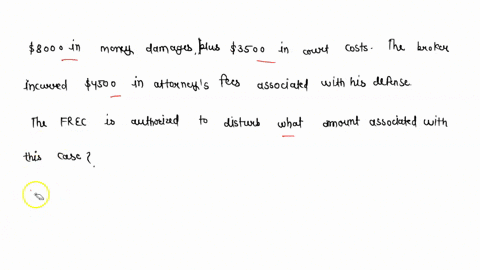 $8000 in money damages, plus $3500 in court costs. The broker
incurred $4500 in attorney's fees associated with his defense
The FREC is authorized to disturs what amount associated with
this case?